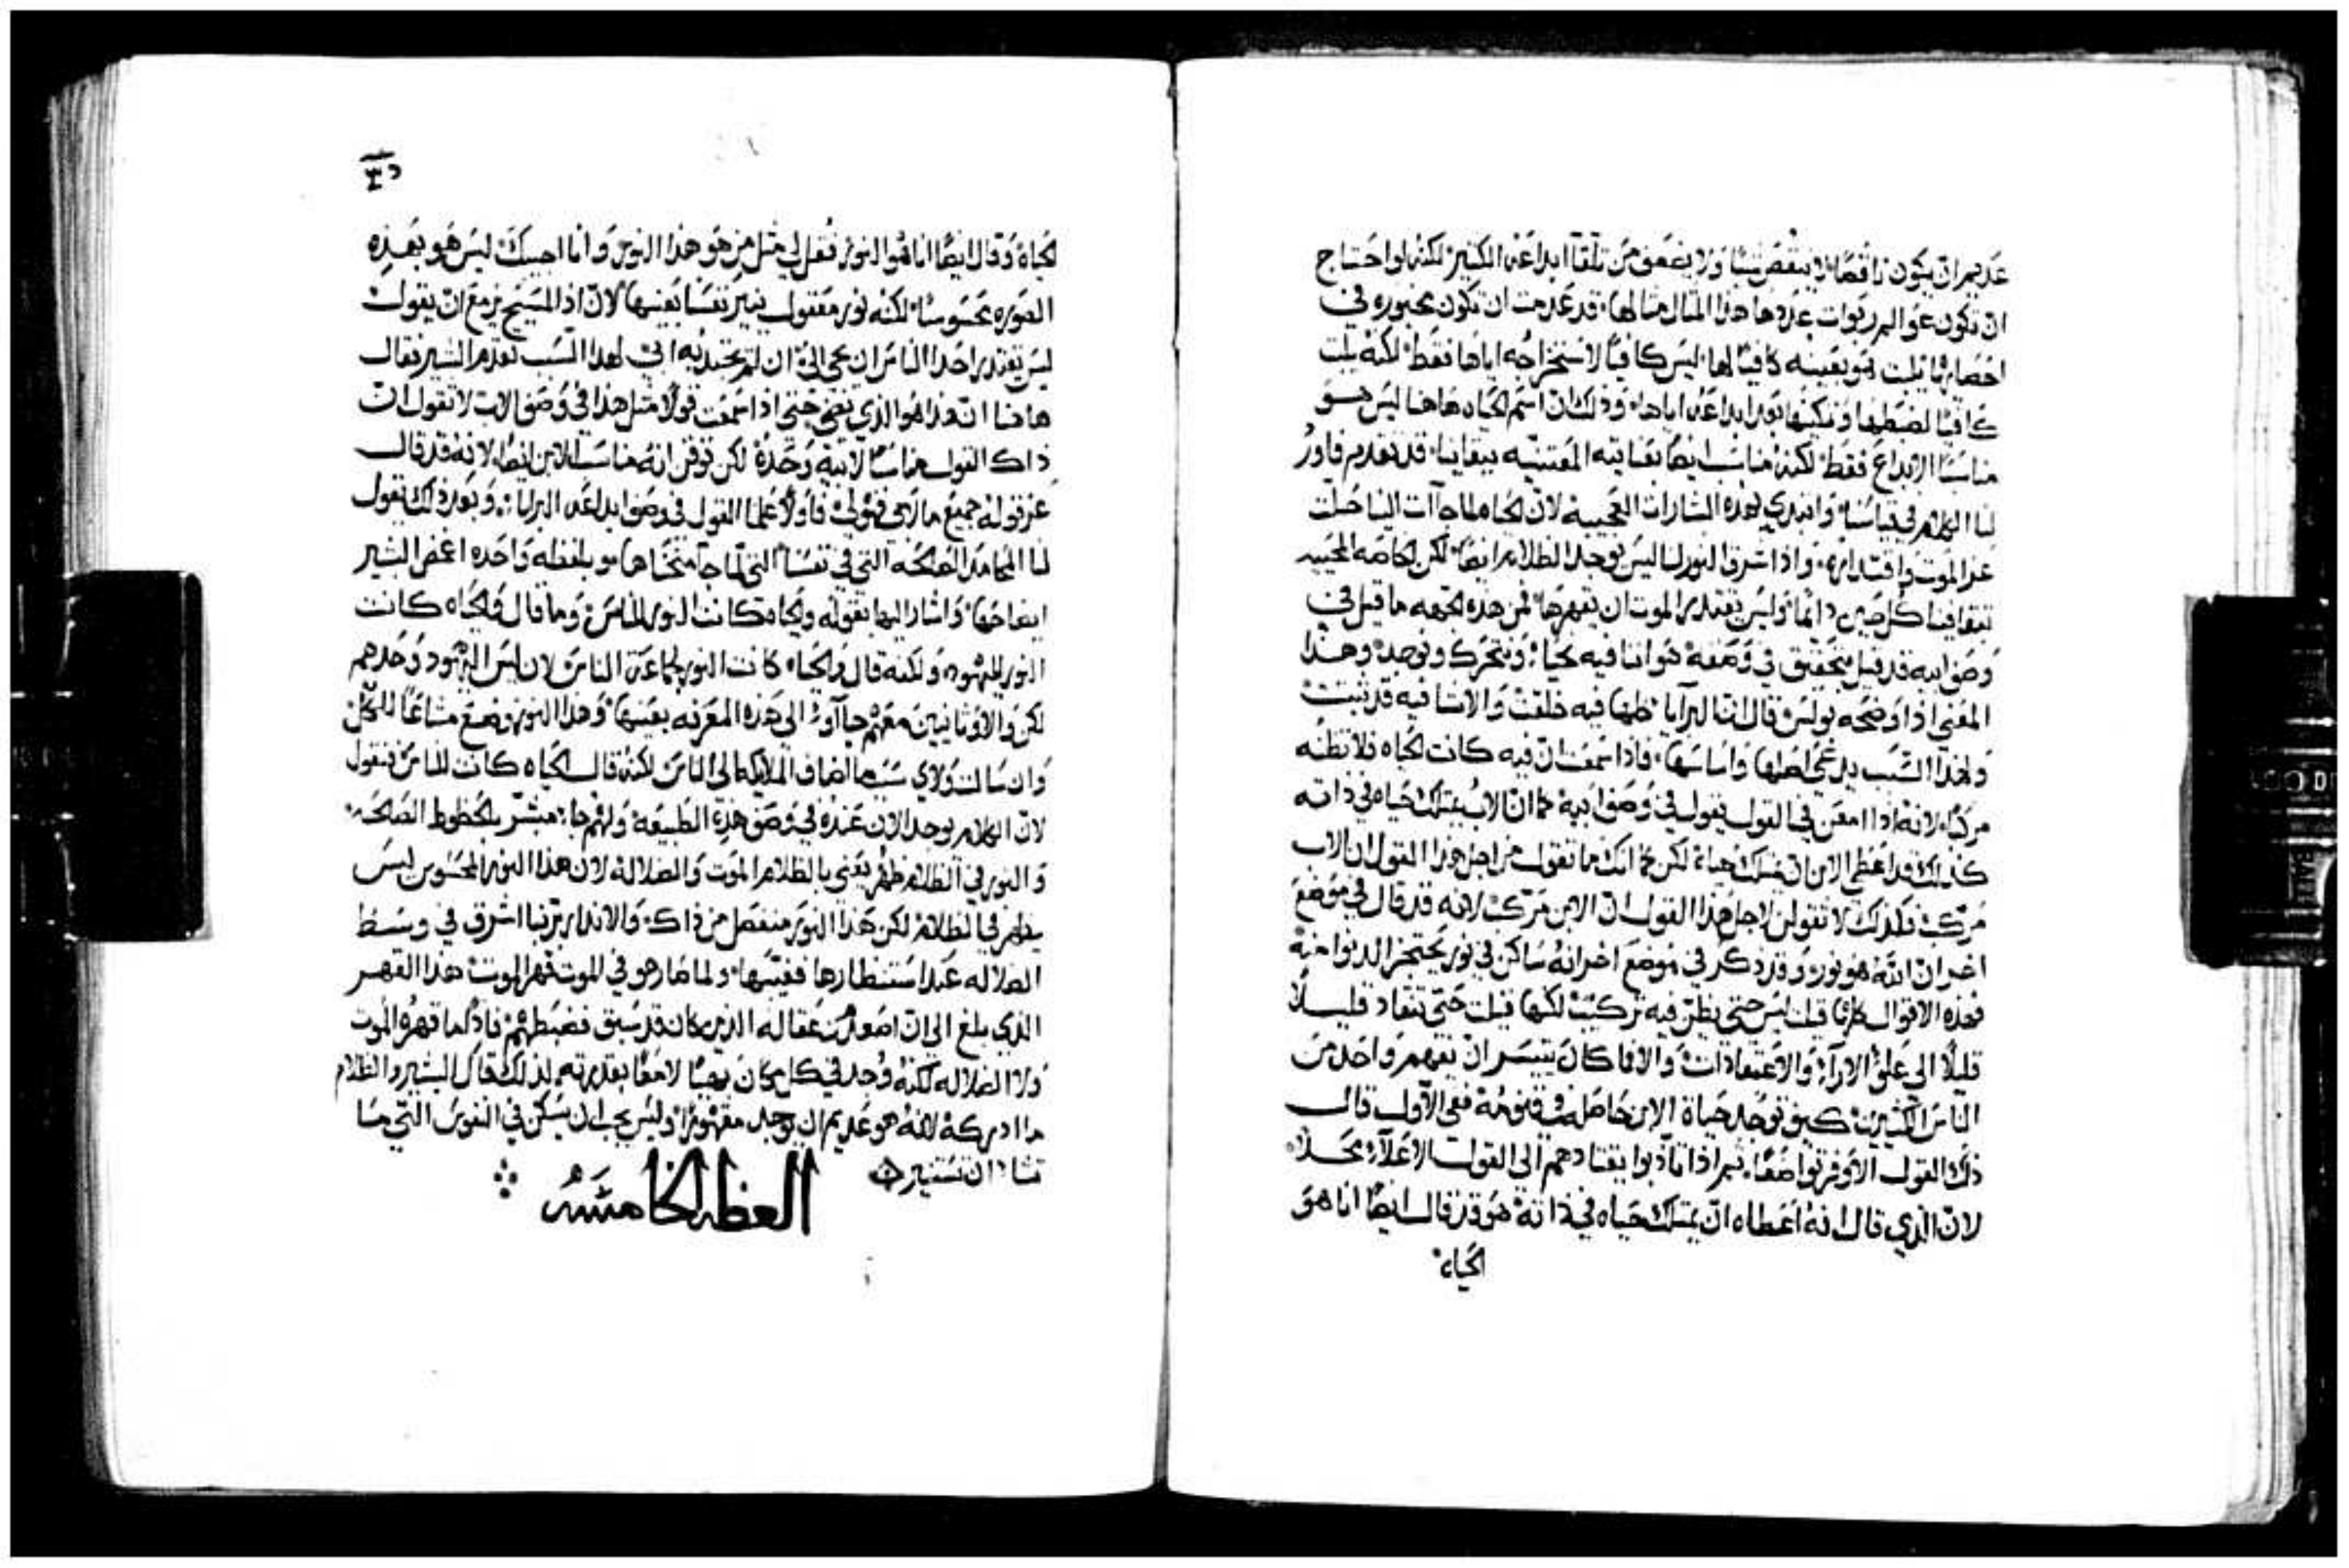 عديم ان يكون ناقصًا لا ينقص شيا ولا يضعف من تلقآ ابداعه الكثير لكنه لو احتاج
ان تكون عوالم ربوات عددها هذا المثال مثالها قد عدمت ان تكون محبوره في
احصايها يلبث هو بعينه كافيًا لها ليس كافيًا لاستخراجه اياها فقط لكنه يلبث
كافيًا لضبطها وتمكينها بعد ابداعه اياها وذلك ان اسم الحياه هاهنا ليس هو
مناسبًا الابداع فقط لكنه مناسب ايضًا بعنايته المعتنيه ببقاينا قد تقدم فاورد
لنا الكلام في قيامتنا وابتدي بهذه البشارات العجيبه لان الحياه لما جاآت الينا حلت
عز الموت واقتداره واذا اشرق النور لنا ليس يوجد الظلام ايضًا لكن الحياه المحييه
تبقا فينا كل حين دايمًا وليس يقتدر الموت ان يقهرها فمن هذه الجهه ما قيل في
وصف ابيه قد قيل بتحقيق في وصفه هو اننا فيه نحيا ونتحرك ونوجد وهذا
المعني اذا اوضحه بولس قال ان البرايا كلها فيه خلقت والاشيا فيه قد ثبتت
ولهذا السبب يدعي اصلها واساسها فاذا سمعت ان فيه كانت الحياه فلا تظنه
مركبًا لانه اذا امعن في القول يقول في وصف ابيه كما ان الاب يمتلك حياه في ذاته
كذلك قد اعطي الابن ان يمتلك حياة لكن كما انك ما تقول من اجل هذا القول ان الاب
مركب فكذلك لا تقولن لاجل هذا القول ان الابن مركب لانه قد قال في موضع
اخر ان الله هو نور وقد ذكر في موضع اخر انه ساكن في نور يحتجز الدنوا منه
فهذه الاقوال كلها قيلت ليس حتي يظن فيه تركيب لكنها قيلت حتي تنقاد قليلًا
قليلًا الي علو الارآء والاعتقادات والا فما كان يتيسر ان يفهم واحد من
الناس الكثيرين كيف توجد حياة الابن حاصله في قنومه ففي الاول قال
ذلك القول الاوفر تواضعًا ثم اذا تادبوا يقتادهم الي القول الاعلآء محلًا
لان الذي قال انه اعطاه ان يمتلك حياه في ذاته هو قد قال ايضًا انا هو
الحياه
الحياة وقال ايضًا انا هو النور فقل لي مثل من هو هذا النور وانا اجيبك ليس هو بهذه
الصوره محسوسًا لكنه نور معقول ينير نفسًا بعينها لان اذا المسيح مزمع ان يقول
ليس يقتدر احد الناس ان يجي اليّ ان لم يجتذبه ابي لهذا السبب تقدم البشير فقال
هاهنا ان هذا هو الذي يضي حتي اذا سمعت قولًا مثل هذا في وصف الاب لا تقول ان
ذاك القول مناسبًا لابيه وحده لكن توقن انه مناسب للابن ايضًا لانه قد قال
عن قوله جميع ما لابي فهو لي فاولًا علمنا القول في وصف ابداعه البرايا وبعد ذلك يقول
لنا المحامد الصالحه التي في نفسنا التي لما جآ منحناها هو بلفظه واحده اغمض البشير
ايضاحها واشار اليها بقوله والحياه كانت النور للناس وما قال والحياه كانت
النور لليهود ولكنه قال والحياه كانت النور لجماعة الناس لان ليس اليهود وحدهم
لكن والاوثانيين معهم جاآوا الي هذه المعرفه بعينها وهذا النور وضع مشاعًا للكل
وان سالت ولاي سبب ما اضاف الملايكه الي الناس لكنه قال الحياه كانت للناس فنقول
لان الكلام يوجد الان عنده في وصف هذه الطبيعه ولهم جا مبشر بالحظوظ الصالحه
والنور في الظلام ظهر يعني بالظلام الموت والضلاله لان هذا النور المحسوس ليس
يظهر في الظلام لكن هذا النور منفصل من ذاك والانذار بربنا اشرق في وسط
الضلاله عند استظهارها فغيبها ولما صار هو في الموت قهر الموت هذا القهر
الذي بلغ الي ان اصعد من عقاله الذين كان قد سبق فضبطهم فاذ ما قهره الموت
ولا الضلاله لكنه وجد في كل مكان بهيًا لامعًا بقدرته لذلك قال البشير والظلام
ما ادركه لانه هو عديم ان يوجد مقهورًا وليس يحب ان يسكن في النفوس التي ما
تشا ان تستنير
العظه الخامسه